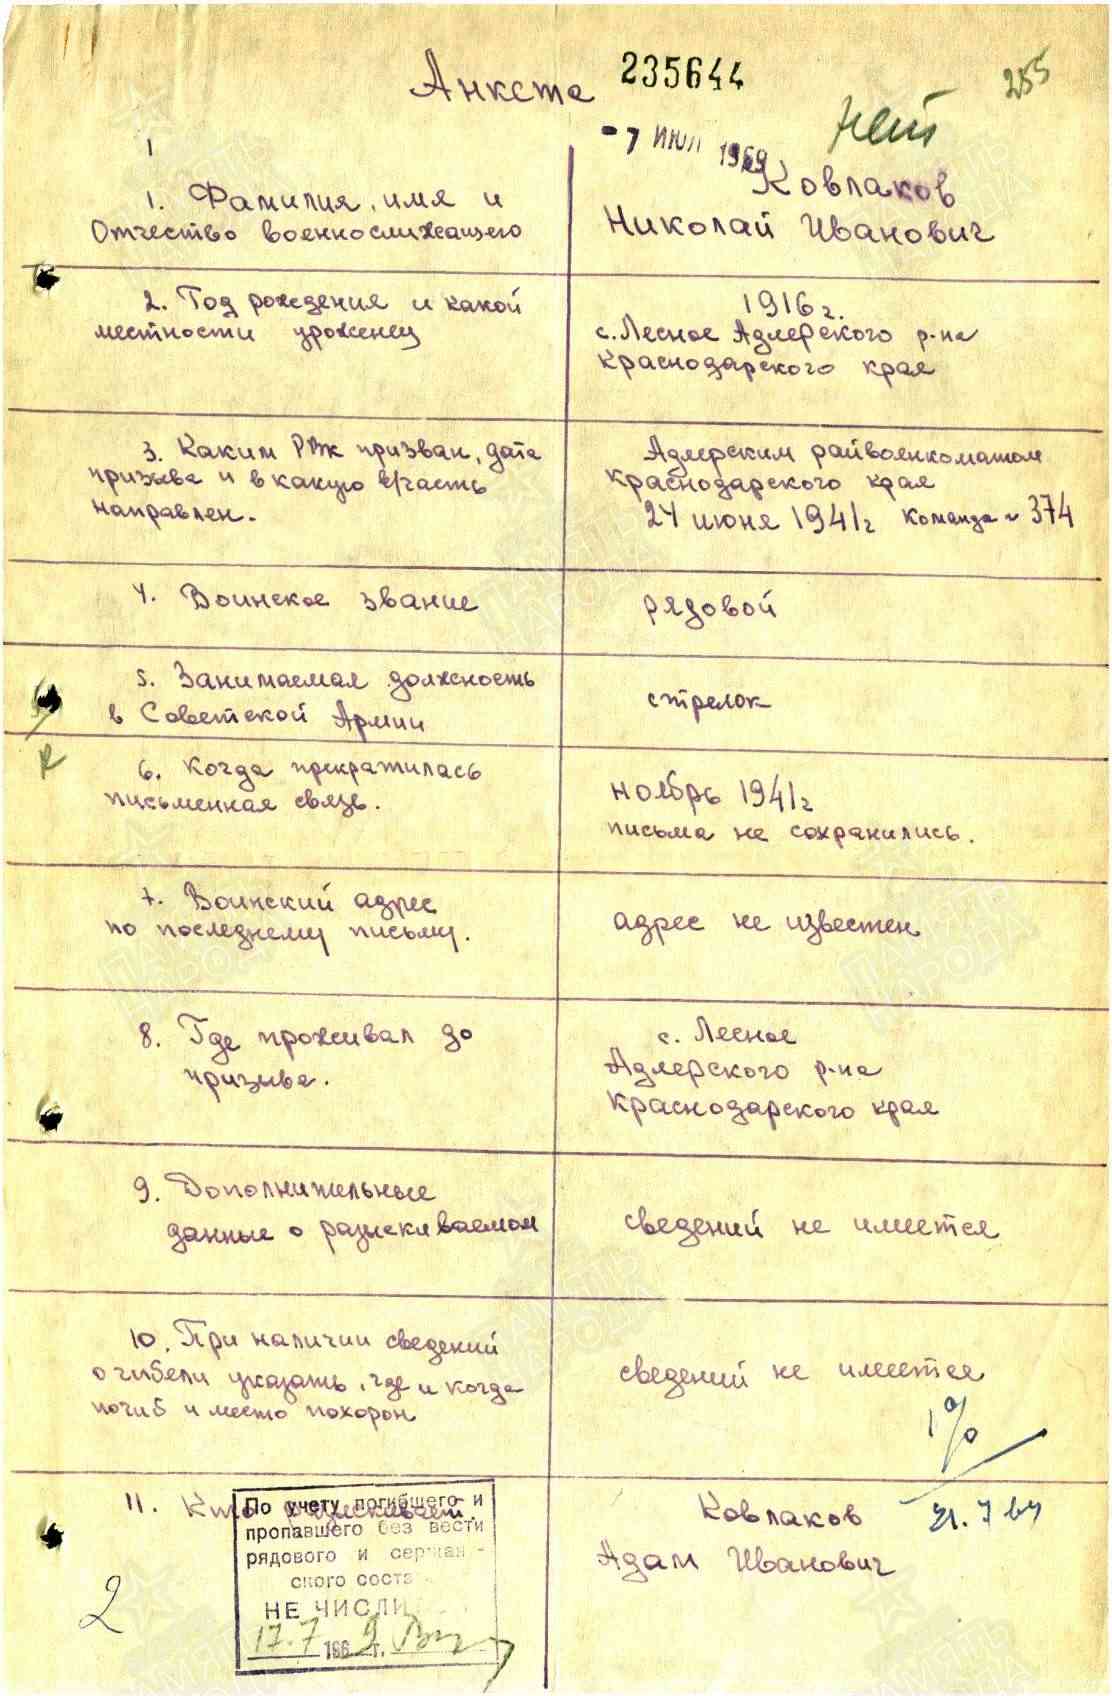 Анкета 235644
255
нет
- 7 ИЮЛ 1969
1
1. Фамилия, имя и
Отчество военнослужащего
Ковлаков
Николай Иванович
2. Год рождения и какой
местности уроженец
1916 г.
с. Лесное Адлерского р-на
Краснодарского края
3. Каким РВК призван, дата
призыва и в какую в/часть
направлен.
Адлерским райвоенкоматом
Краснодарского края
24 июня 1941 г Команда № 374
4. Воинское звание
рядовой
5. Занимаемая должность
в Советской Армии
стрелок
6. Когда прекратилась
письменная связь.
Ноябрь 1941 г
письма не сохранились.
7. Воинский адрес
по последнему письму.
адрес не известен
8. Где проживал до
призыва.
с. Лесное
Адлерского р-на
Краснодарского края
9. Дополнительные
данные о разыскиваемом
сведений не имеется
10. При наличии сведений
о гибели указать, где и когда
погиб и место похорон
сведений не имеется
11. Кто разыскивает.
Ковлаков
Адам Иванович
По учету погибшего и
пропавшего без вести
рядового и сержан-
ского соста
НЕ ЧИСЛИ
17.7 1969 г.
2
ПАМЯТЬ
НАРОДА